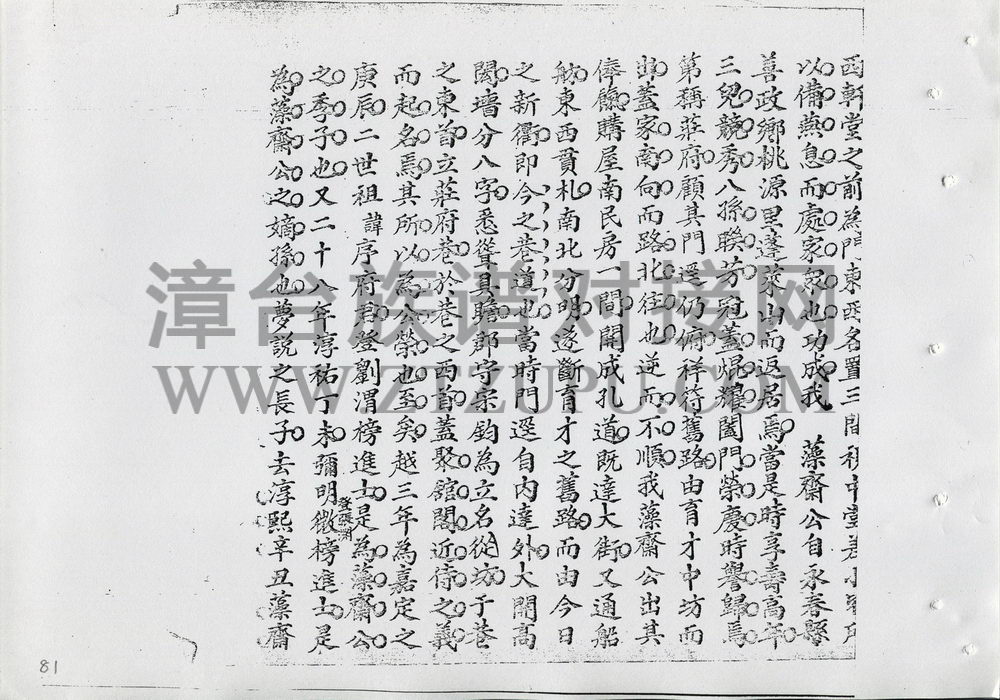 西軒堂之前為門東西各置三間移中堂差小
以備燕息而處家眾也功成我 藻齋公自永春縣
善政鄉桃源里蓬萊山而返居焉當是時享壽高年
三兒競秀八孫聯芳冠蓋焜耀闔門榮慶時譽歸焉
第稱莊府顧其門逕仍俯祥符舊路由育才中坊而
出蓋家南向而路北往也逆而不順我藻齋公出其
俸餘購屋南民房一間開成孔道既達大街又通船
舫東西貫札南北分明遂斷育才之舊路而由今日
之新衢即今之巷道也當時門逕自内達外大開高
閎墻分八字悉聳具瞻郡守宗鈞為立名從坊于巷
之東首立莊府巷於巷之西首蓋聚舘閣近侍之義
而起名焉其所以為公榮也至矣越三年為嘉定之
庚辰二世祖 諱序府君登劉渭榜進士是為藻齋公
之季子也又二十八年淳祐丁未彌明徵榜進士是
登張淵
為藻齋公之嫡孫也夢說之長子去淳熙辛丑藻齋
漳台族谱对接网
WWW.ZTZUPU.COM
81